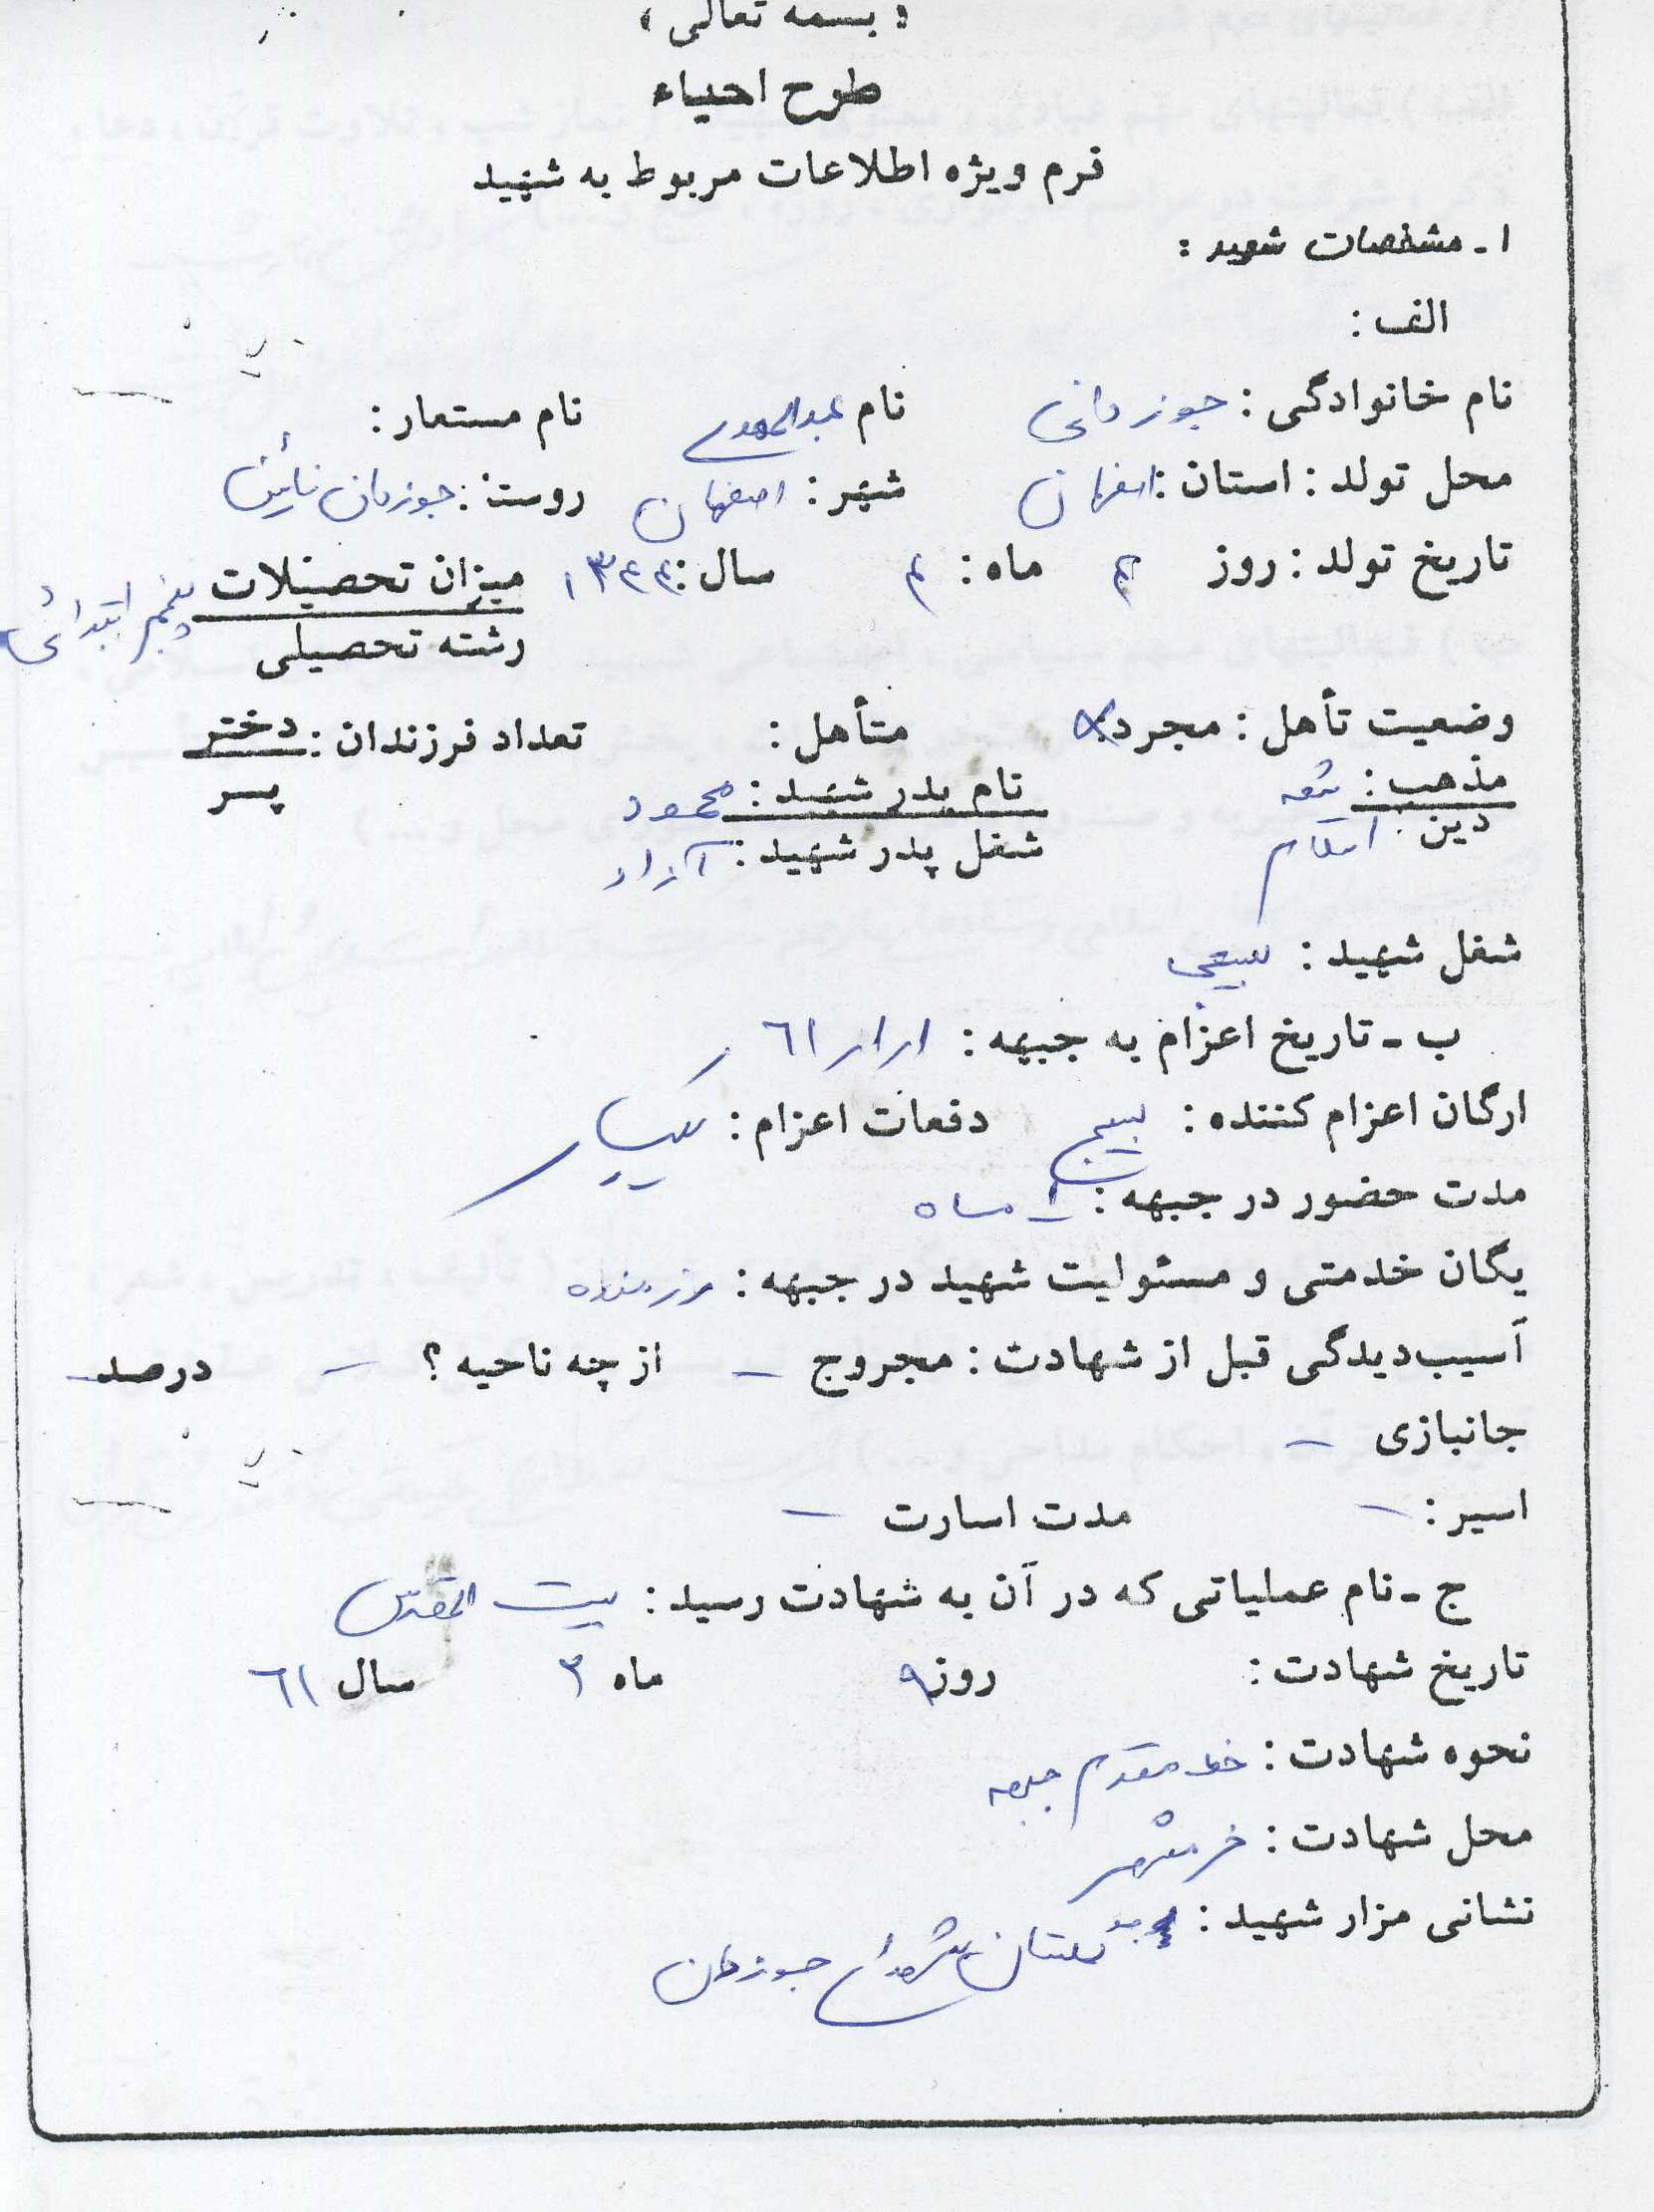 « بسمه تعالی »
طرح احیاء
فرم ویژه اطلاعات مربوط به شهید
۱ـ مشخصات شهید :
الف :
نام خانوادگی : جوزدانی نام عبدالمهدی نام مستعار :
محل تولد : استان : اصفهان شهر : اصفهان روستا : جوزدان نائین
تاریخ تولد : روز ماه : ۴ سال : میزان تحصیلات پنجم ابتدائی
رشته تحصیلی
وضعیت تأهل : مجرد متأهل : تعداد فرزندان : دختر
پسر
مذهب : شیعه نام پدر شهید : محمود
دین : اسلام شغل پدر شهید : آزاد
شغل شهید : بسیجی
ب ـ تاریخ اعزام به جبهه : ۱ر۱ر۶۱
ارگان اعزام کننده : بسیج دفعات اعزام : یکبار
مدت حضور در جبهه : ماه
یگان خدمتی و مسئولیت شهید در جبهه : رزمنده
آسیب‌دیدگی قبل از شهادت : مجروح – از چه ناحیه ؟ – درصد
جانبازی –
اسیر : – مدت اسارت –
ج ـ نام عملیاتی که در آن به شهادت رسید : بیت المقدس
تاریخ شهادت : روز ۹ ماه ۳ سال ۶۱
نحوه شهادت : خط مقدم جبهه
محل شهادت : خرمشهر
نشانی مزار شهید : گلستان شهدای جوزدان